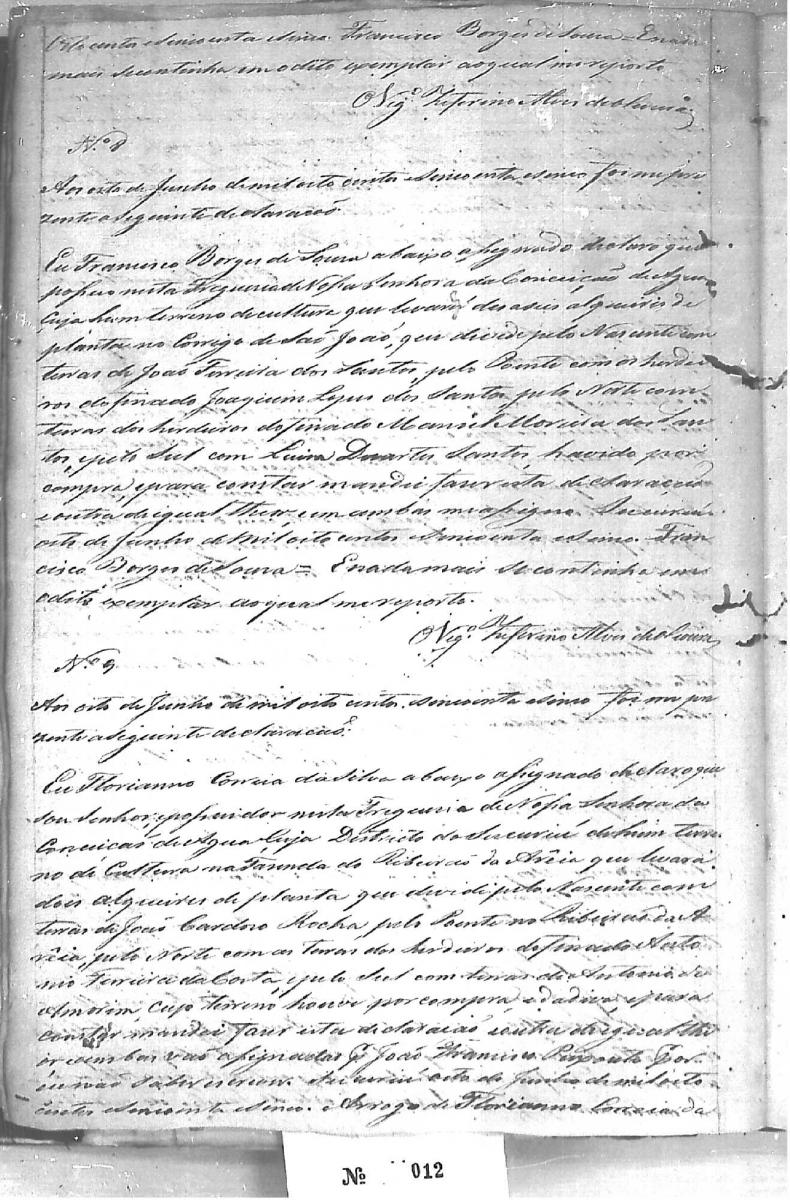 Oito centos e sincoenta e sinco. Francisco Borges de Souza = E nada
mais se continha em o dito exemplar ao qual me reporto
O Vigº Zeferino Alves de Souza
N.º 8
Aos oito de Junho de mil oito centos e sincoenta e sinco foi me pre
zente a seguinte declaracaõ
Eu Francisco Borges de Souza abaixo asignado declaro que
posuo nesta Freguezia de Nossa Senhora da Conceiçaõ de Agua
Çuja hum terreno de cultura que levará des a seis alqueires de
planta no Corrigo de Saõ Joaõ, que divide pelo Nascente com
terras de Joaõ Ferreira dos Santos, pelo Poente com os herdei
ros do finado Joaquim Lopes dos Santos, pelo Norte com
terras dos herdeiros do finado Manoel Moreira dos San
tos, e pelo Sul com Duarte Santos havido por
compra, e para constar mandei fazer esta declaraçaõ
e outra de igual theor, e em ambas me asigno. Sucuriú
oito de Junho de mil oito centos e sincoenta e sinco. Fran
cisco Borges de Souza = E nada mais se continha em
o dito exemplar ao qual me reporto.
O Vigº Zeferino Alves de Souza
N.º 9
Aos oito de Junho de mil oito centos e sincoenta e sinco foi me pre
zente a seguinte declaracaõ.
Eu Florianno Correia da Silva abaixo asignado declaro que
sou Senhor, e posuidor nesta Freguezia de Nossa Senhora da
Conceicaõ de Agua Çuja Districto do Sucuriú de hum terre
no de Cultura na Fazenda do Ribeiraõ da Arêia que levará
dois alqueires de planta que divide pelo Nascente com
terras de Joaõ Cardozo Rocha, pelo Poente no Ribeiraõ da A
rêia, pelo Norte com as terras dos herdeiros do finado Anto
nio Ferreira da Costa, e pelo Sul com terras de Antonio de
Amorim, cujo terreno houve por compra, e dadiva, e para
constar mandei fazer esta declaracaõ e outra de igual the
ôr e ambas vaõ asignadas p. Joaõ Francisco por
eu naõ saber escrever. Sucuriú oito de Junho de mil oito
centos e sincoenta e sinco. Arrogo de Florianno Correia da
Nº 012